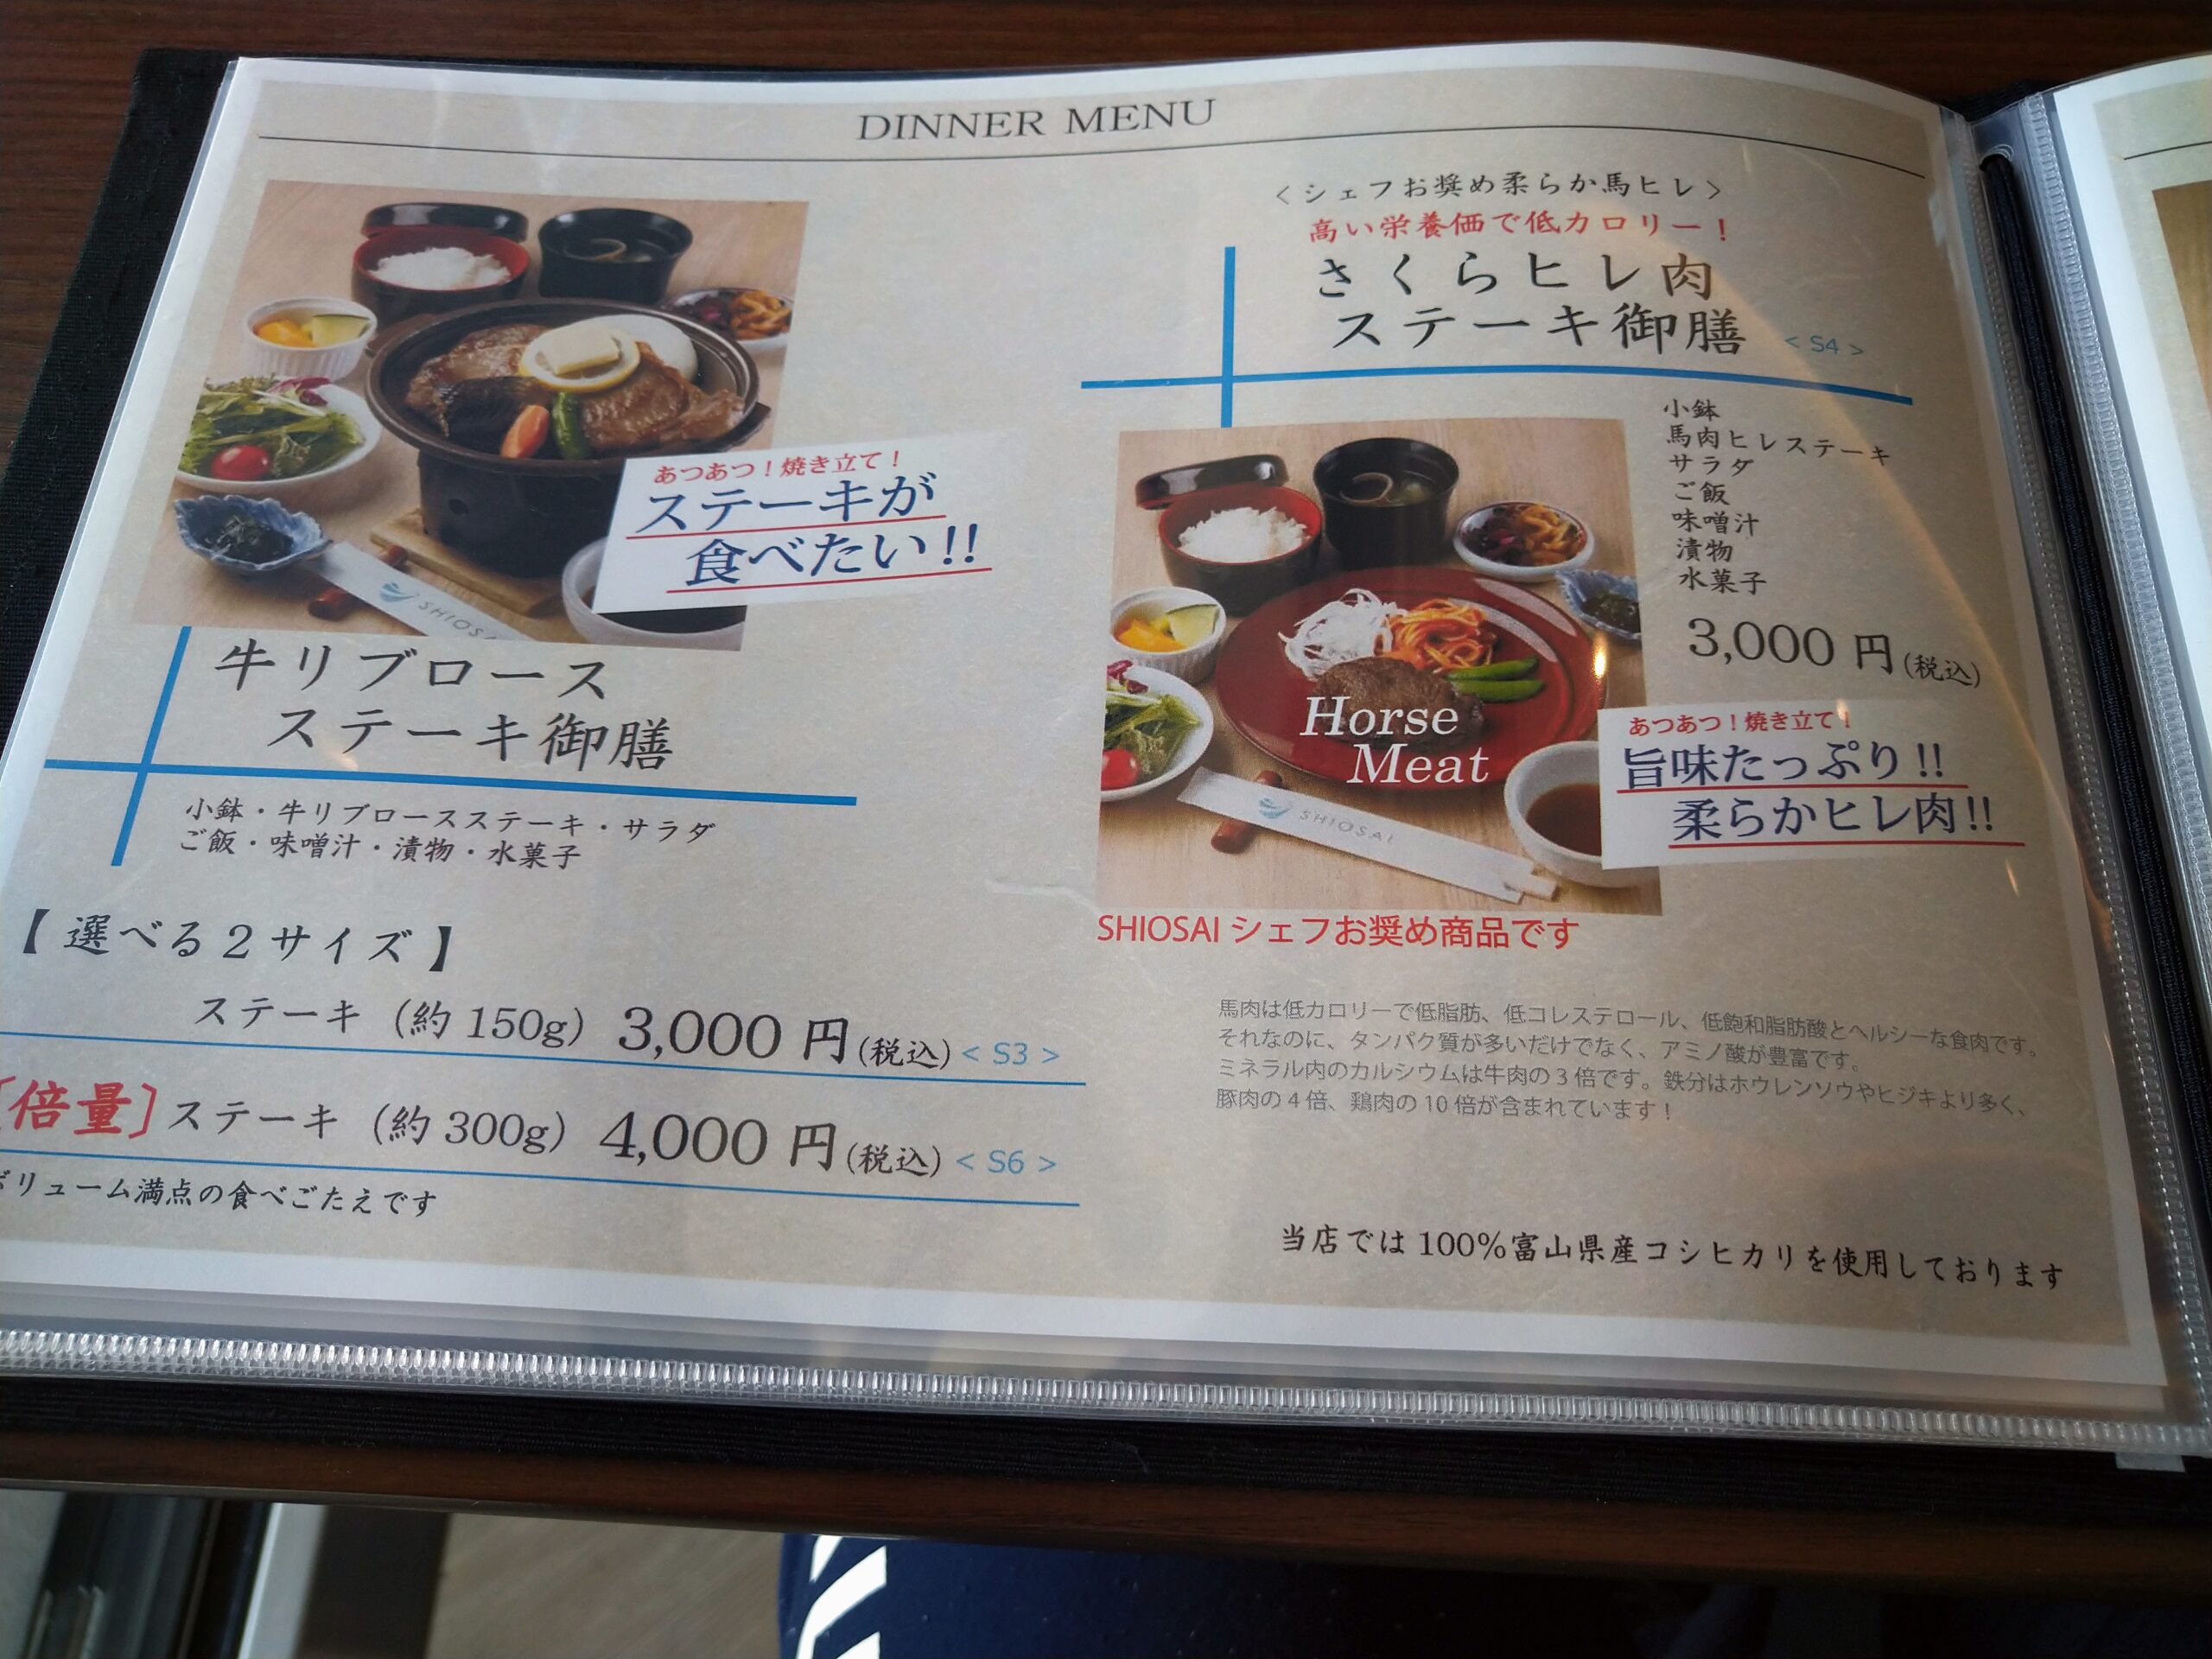 DINNER MENU
あつあつ！焼き立て！
ステーキが
食べたい!!
SHIOSAI
牛リブロース
ステーキ御膳
小鉢・牛リブロースステーキ・サラダ
ご飯・味噌汁・漬物・水菓子
【選べる２サイズ】
ステーキ（約150g） 3,000 円(税込) < S3 >
［倍量］ステーキ（約300g） 4,000 円(税込) < S6 >
ボリューム満点の食べごたえです
＜シェフお奨め柔らか馬ヒレ＞
高い栄養価で低カロリー！
さくらヒレ肉
ステーキ御膳 < S4 >
小鉢
馬肉ヒレステーキ
サラダ
ご飯
味噌汁
漬物
水菓子
3,000 円(税込)
Horse
Meat
SHIOSAI
あつあつ！焼き立て！
旨味たっぷり!!
柔らかヒレ肉!!
SHIOSAI シェフお奨め商品です
馬肉は低カロリーで低脂肪、低コレステロール、低飽和脂肪酸とヘルシーな食肉です。
それなのに、タンパク質が多いだけでなく、アミノ酸が豊富です。
ミネラル内のカルシウムは牛肉の３倍です。鉄分はホウレンソウやヒジキより多く、
豚肉の４倍、鶏肉の10倍が含まれています！
当店では100%富山県産コシヒカリを使用しております